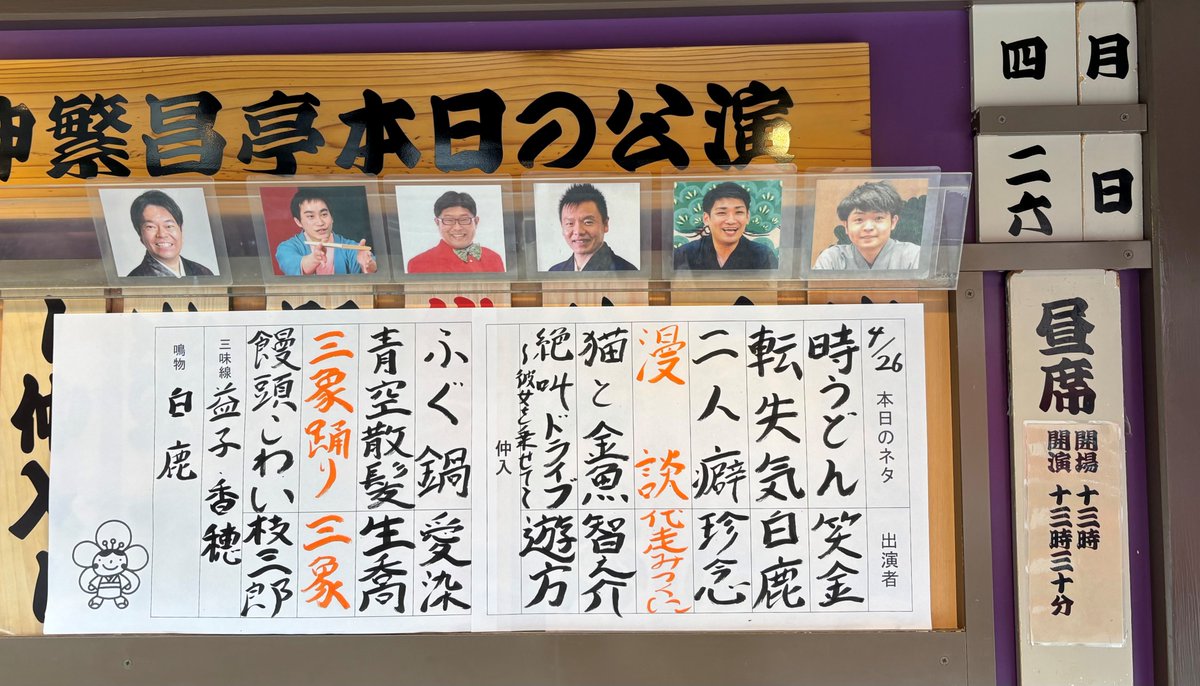 繁昌亭本日の公演
四月
二六日
昼席
開場 十三時
開演 十三時三十分
4/26 本日のネタ 出演者
時うどん 笑金
転失気 白鹿
二人癖 珍念
漫談
猫と金魚 智之介
絶叫ドライブ 遊方
〜彼女を乗せて〜
仲入
ふぐ鍋 愛染
青空散髪 生喬
三象踊り 三象
饅頭こわい 枝三郎
三味線 益子・香穂
鳴物 白鹿